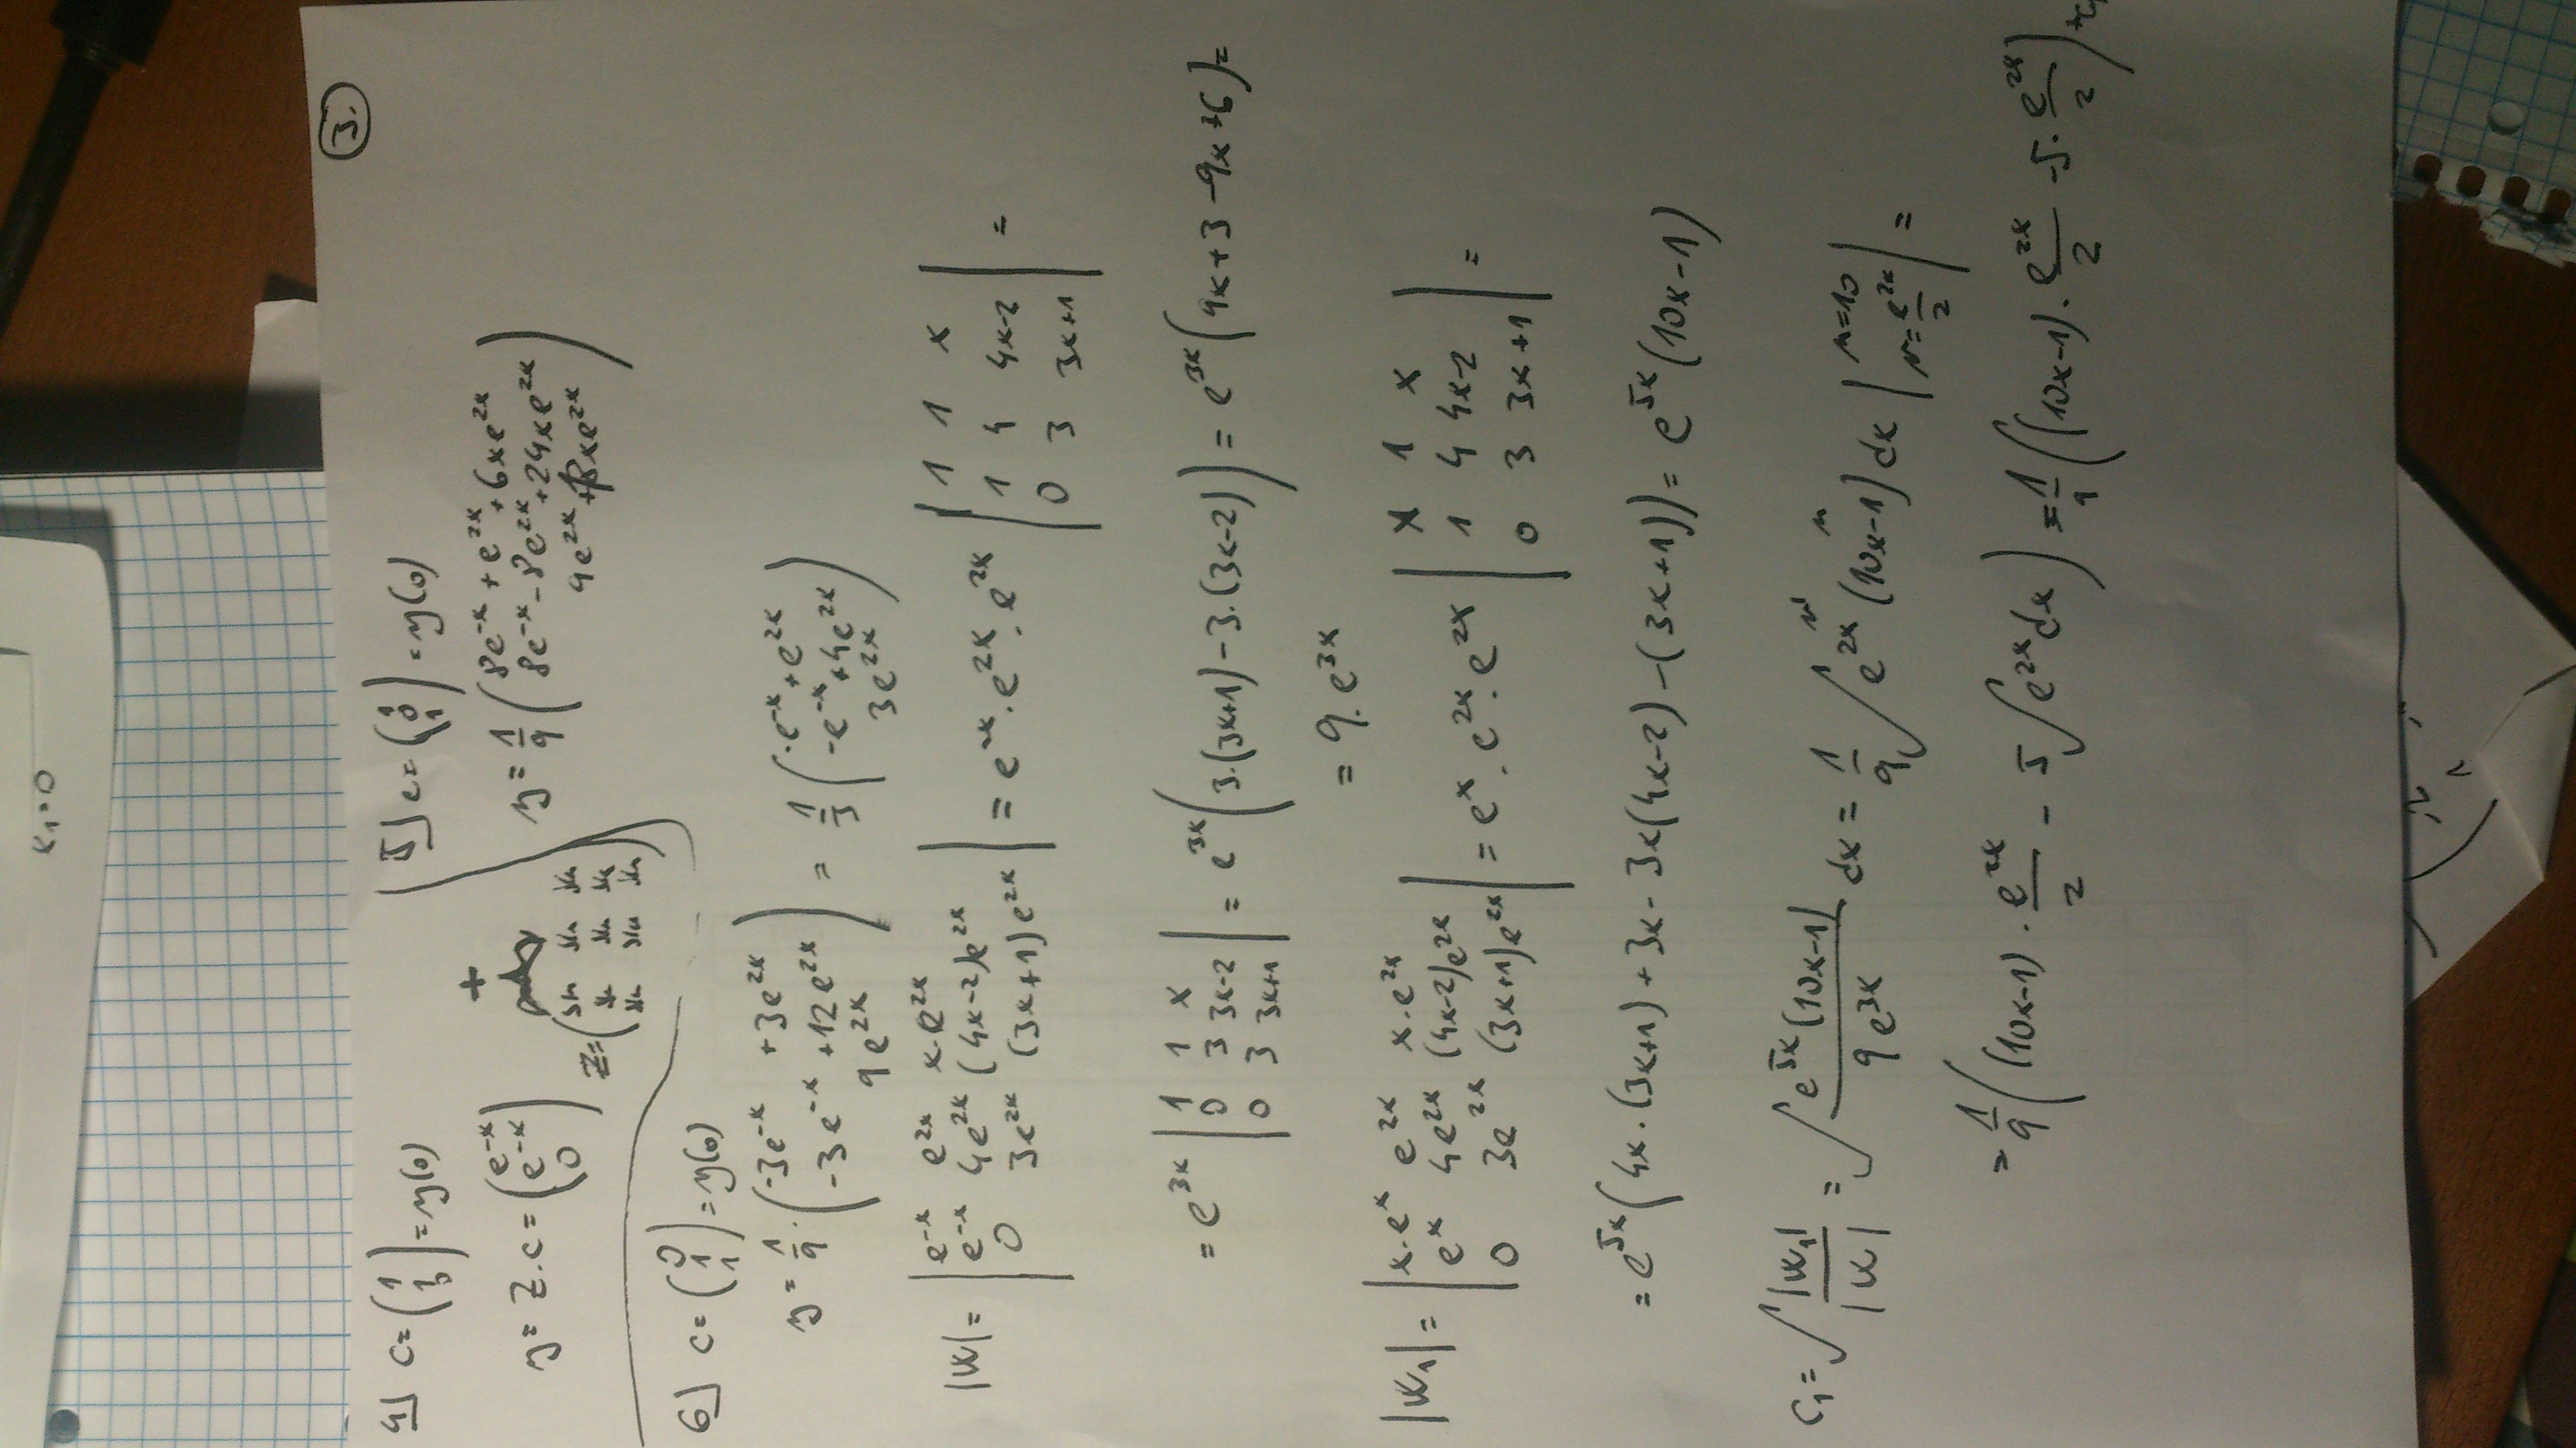 x₁=0
3.
4) c= (1 1 0) = y(0)
y= Z.c = (e^{-x} e^{-x} 0)
+
Z=
5) c= (1 0 1) = y(0)
y= 1/9 (8e^{-x} + e^{2x} + 6xe^{2x}
8e^{-x} - 8e^{2x} + 24xe^{2x}
9e^{2x} + 18xe^{2x})
6) c= (0 1 1) = y(0)
y= 1/9 · (-3e^{-x} +3e^{2x}
-3e^{-x} +12e^{2x}
9e^{2x}) = 1/3 (-e^{-x} + e^{2x}
-e^{-x} +4e^{2x}
3e^{2x})
|W| = | e^{-x} e^{2x} x·e^{2x}
e^{-x} 4e^{2x} (4x-2)e^{2x}
0 3e^{2x} (3x+1)e^{2x} | = e^{-x} · e^{2x} · e^{2x} | 1 1 x
1 4 4x-2
0 3 3x+1 | =
= e^{3x} | 1 1 x
0 3 3x-2
0 3 3x+1 | = e^{3x} (3·(3x+1) - 3·(3x-2)) = e^{3x} (9x+3-9x+6) =
= 9·e^{3x}
|W₁| = | x·e^x e^{2x} x·e^{2x}
e^x 4e^{2x} (4x-2)e^{2x}
0 3e^{2x} (3x+1)e^{2x} | = e^x · e^{2x} · e^{2x} | x 1 x
1 4 4x-2
0 3 3x+1 | =
= e^{5x} (4x·(3x+1) + 3x - 3x(4x-2) - (3x+1)) = e^{5x} (10x-1)
C₁ = ∫ |W₁|/|W| = ∫ e^{5x}(10x-1)/9e^{3x} dx = 1/9 ∫ e^{2x} (10x-1) dx | u=10 v=e^{2x}/2 | =
v' u
= 1/9 ((10x-1) · e^{2x}/2 - 5 ∫ e^{2x} dx) = 1/9 ((10x-1) · e^{2x}/2 - 5 · e^{2x}/2) +c₁
-2
1